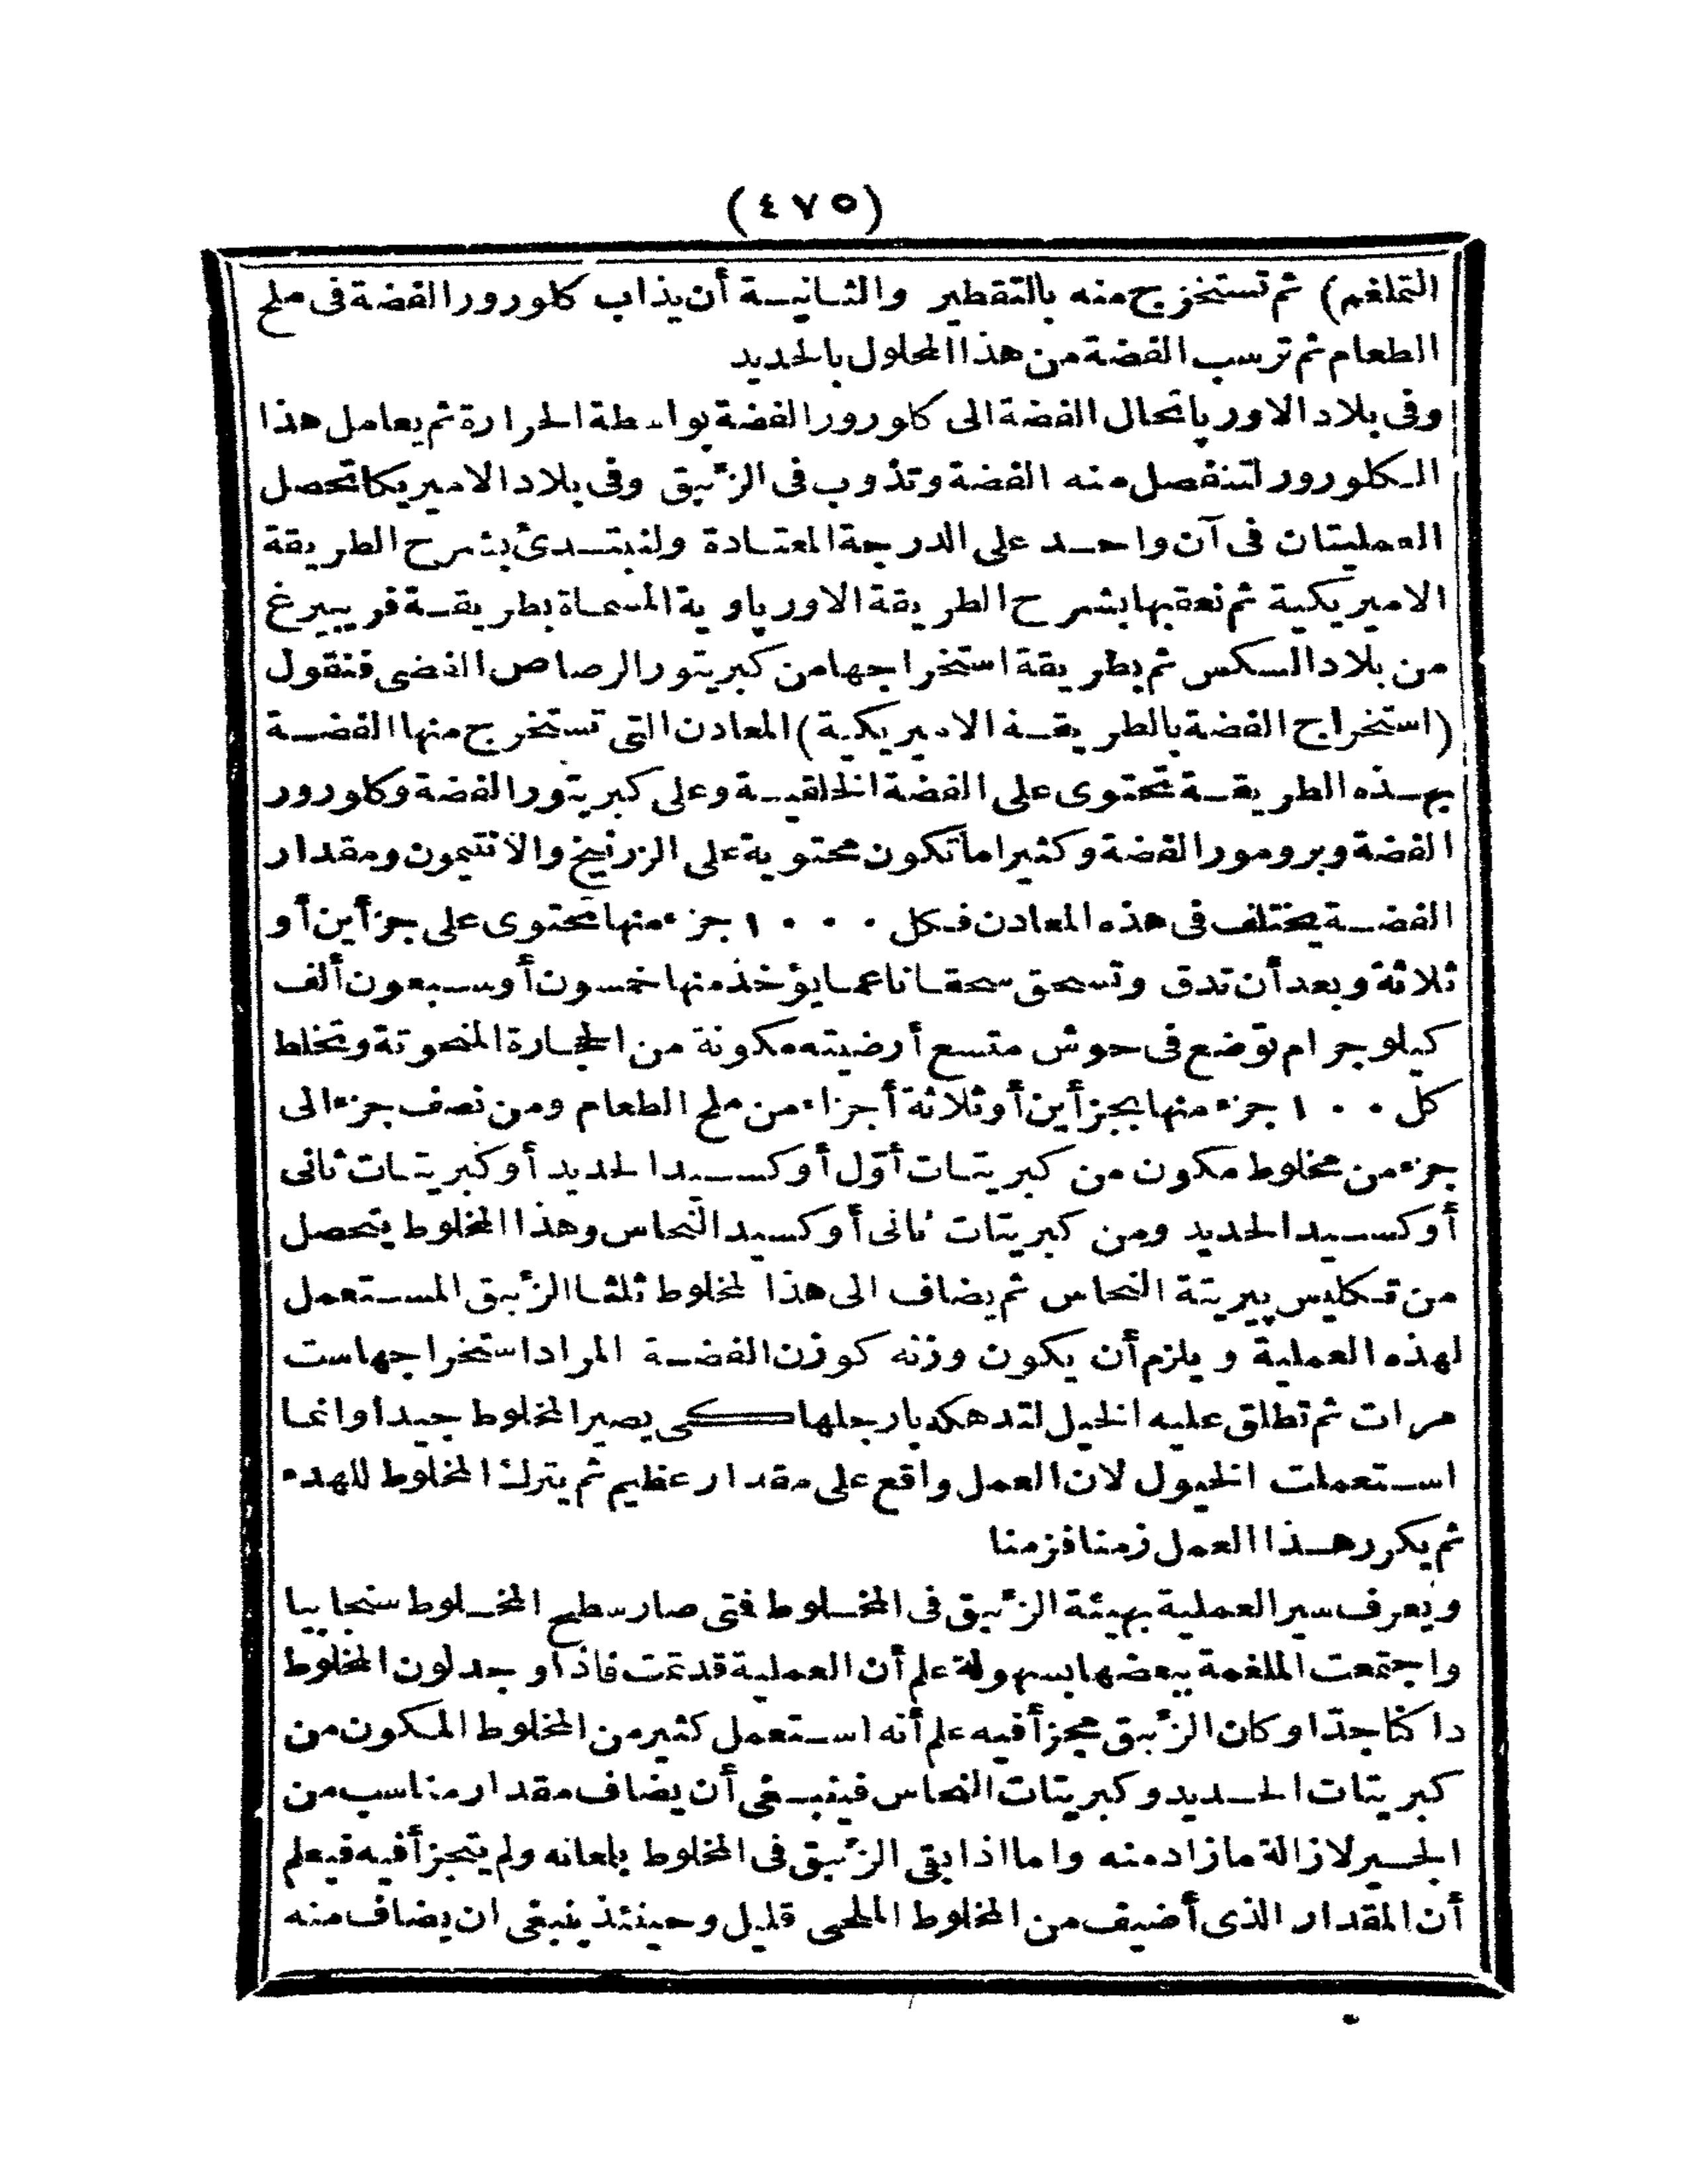 (٤٧٥)
التملغم) ثم تستخرج منه بالتقطير والثانية أن يذاب كلورور الفضة فى ملح
الطعام ثم ترسب الفضة من هذا المحلول بالحديد
وفى بلاد الاورپا تحال الفضة الى كلورور الفضة بواسطة الحرارة ثم يعامل هذا
الكلورور لتنفصل منه الفضة وتذوب فى الزئبق وفى بلاد الاميريكا تحصل
العمليتان فى آن واحد على الدرجة المعتادة ولنبتدئ بشرح الطريقة
الاميريكية ثم نعقبها بشرح الطريقة الاورپاوية المسماة بطريقة فريبيرغ
من بلاد السكس ثم بطريقة استخراجها من كبريتور الرصاص الفضى فنقول
(استخراج الفضة بالطريقة الاميريكية) المعادن التى تستخرج منها الفضة
بهذه الطريقة تحتوى على الفضة الخلقية وعلى كبريتور الفضة وكلورور
الفضة وبرومور الفضة وكثيرا ما تكون محتوية على الزرنيخ والانتيمون ومقدار
الفضة يختلف فى هذه المعادن فكل ١٠٠٠ جزء منها تحتوى على جزأين أو
ثلاثة وبعد أن تدق وتسحق سحقا ناعما يؤخذ منها خمسون أو سبعون ألف
كيلوجرام توضع فى حوش متسع أرضيته مكونة من الحجارة المنحوتة وتخلط
كل ١٠٠ جزء منها بجزأين أو ثلاثة أجزاء من ملح الطعام ومن نصف جزء الى
جزء من مخلوط مكون من كبريتات أوّل أوكسيد الحديد أو كبريتات ثانى
أوكسيد الحديد ومن كبريتات ثانى أوكسيد النحاس وهذا المخلوط يتحصل
من تكليس پيريتة النحاس ثم يضاف الى هذا لمخلوط ثلثا الزئبق المستعمل
لهذه العملية ويلزم أن يكون وزنه كوزن الفضة المراد استخراجها ست
مرات ثم تطلق عليه الخيل لتدهكه بارجلها كى يصير المخلوط جيدا وانما
استعملت الخيول لان العمل واقع على مقدار عظيم ثم يترك المخلوط للهدء
ثم يكرر هذا العمل زمنا فزمنا
ويعرف سير العملية بهيئة الزئبق فى المخلوط فتى صار سطح المخلوط سنجابيا
واجتمعت الملغمة ببعضها بسهولة علم أن العملية قد تمت فاذا وجد لون المخلوط
داكنا جدّا وكان الزئبق مجزأ فيه علم أنه استعمل كثير من المخلوط المكون من
كبريتات الحديد وكبريتات النحاس فينبغى أن يضاف مقدار مناسب من
الجير لازالة ما زاد منه واما اذا بقى الزئبق فى المخلوط بلمعانه ولم يتجزأ فيه فيعلم
أن المقدار الذى أضيف من المخلوط الملحى قليل وحينئذ ينبغى ان يضاف منه